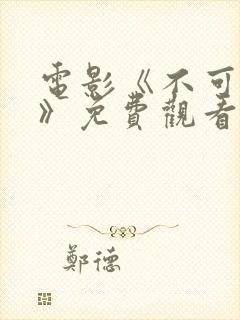 電影《不可
》免費觀看
鄭德